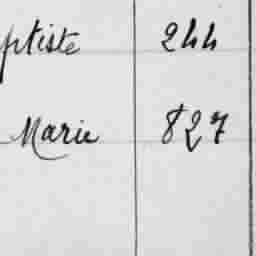 ptiste 244
Marie 827